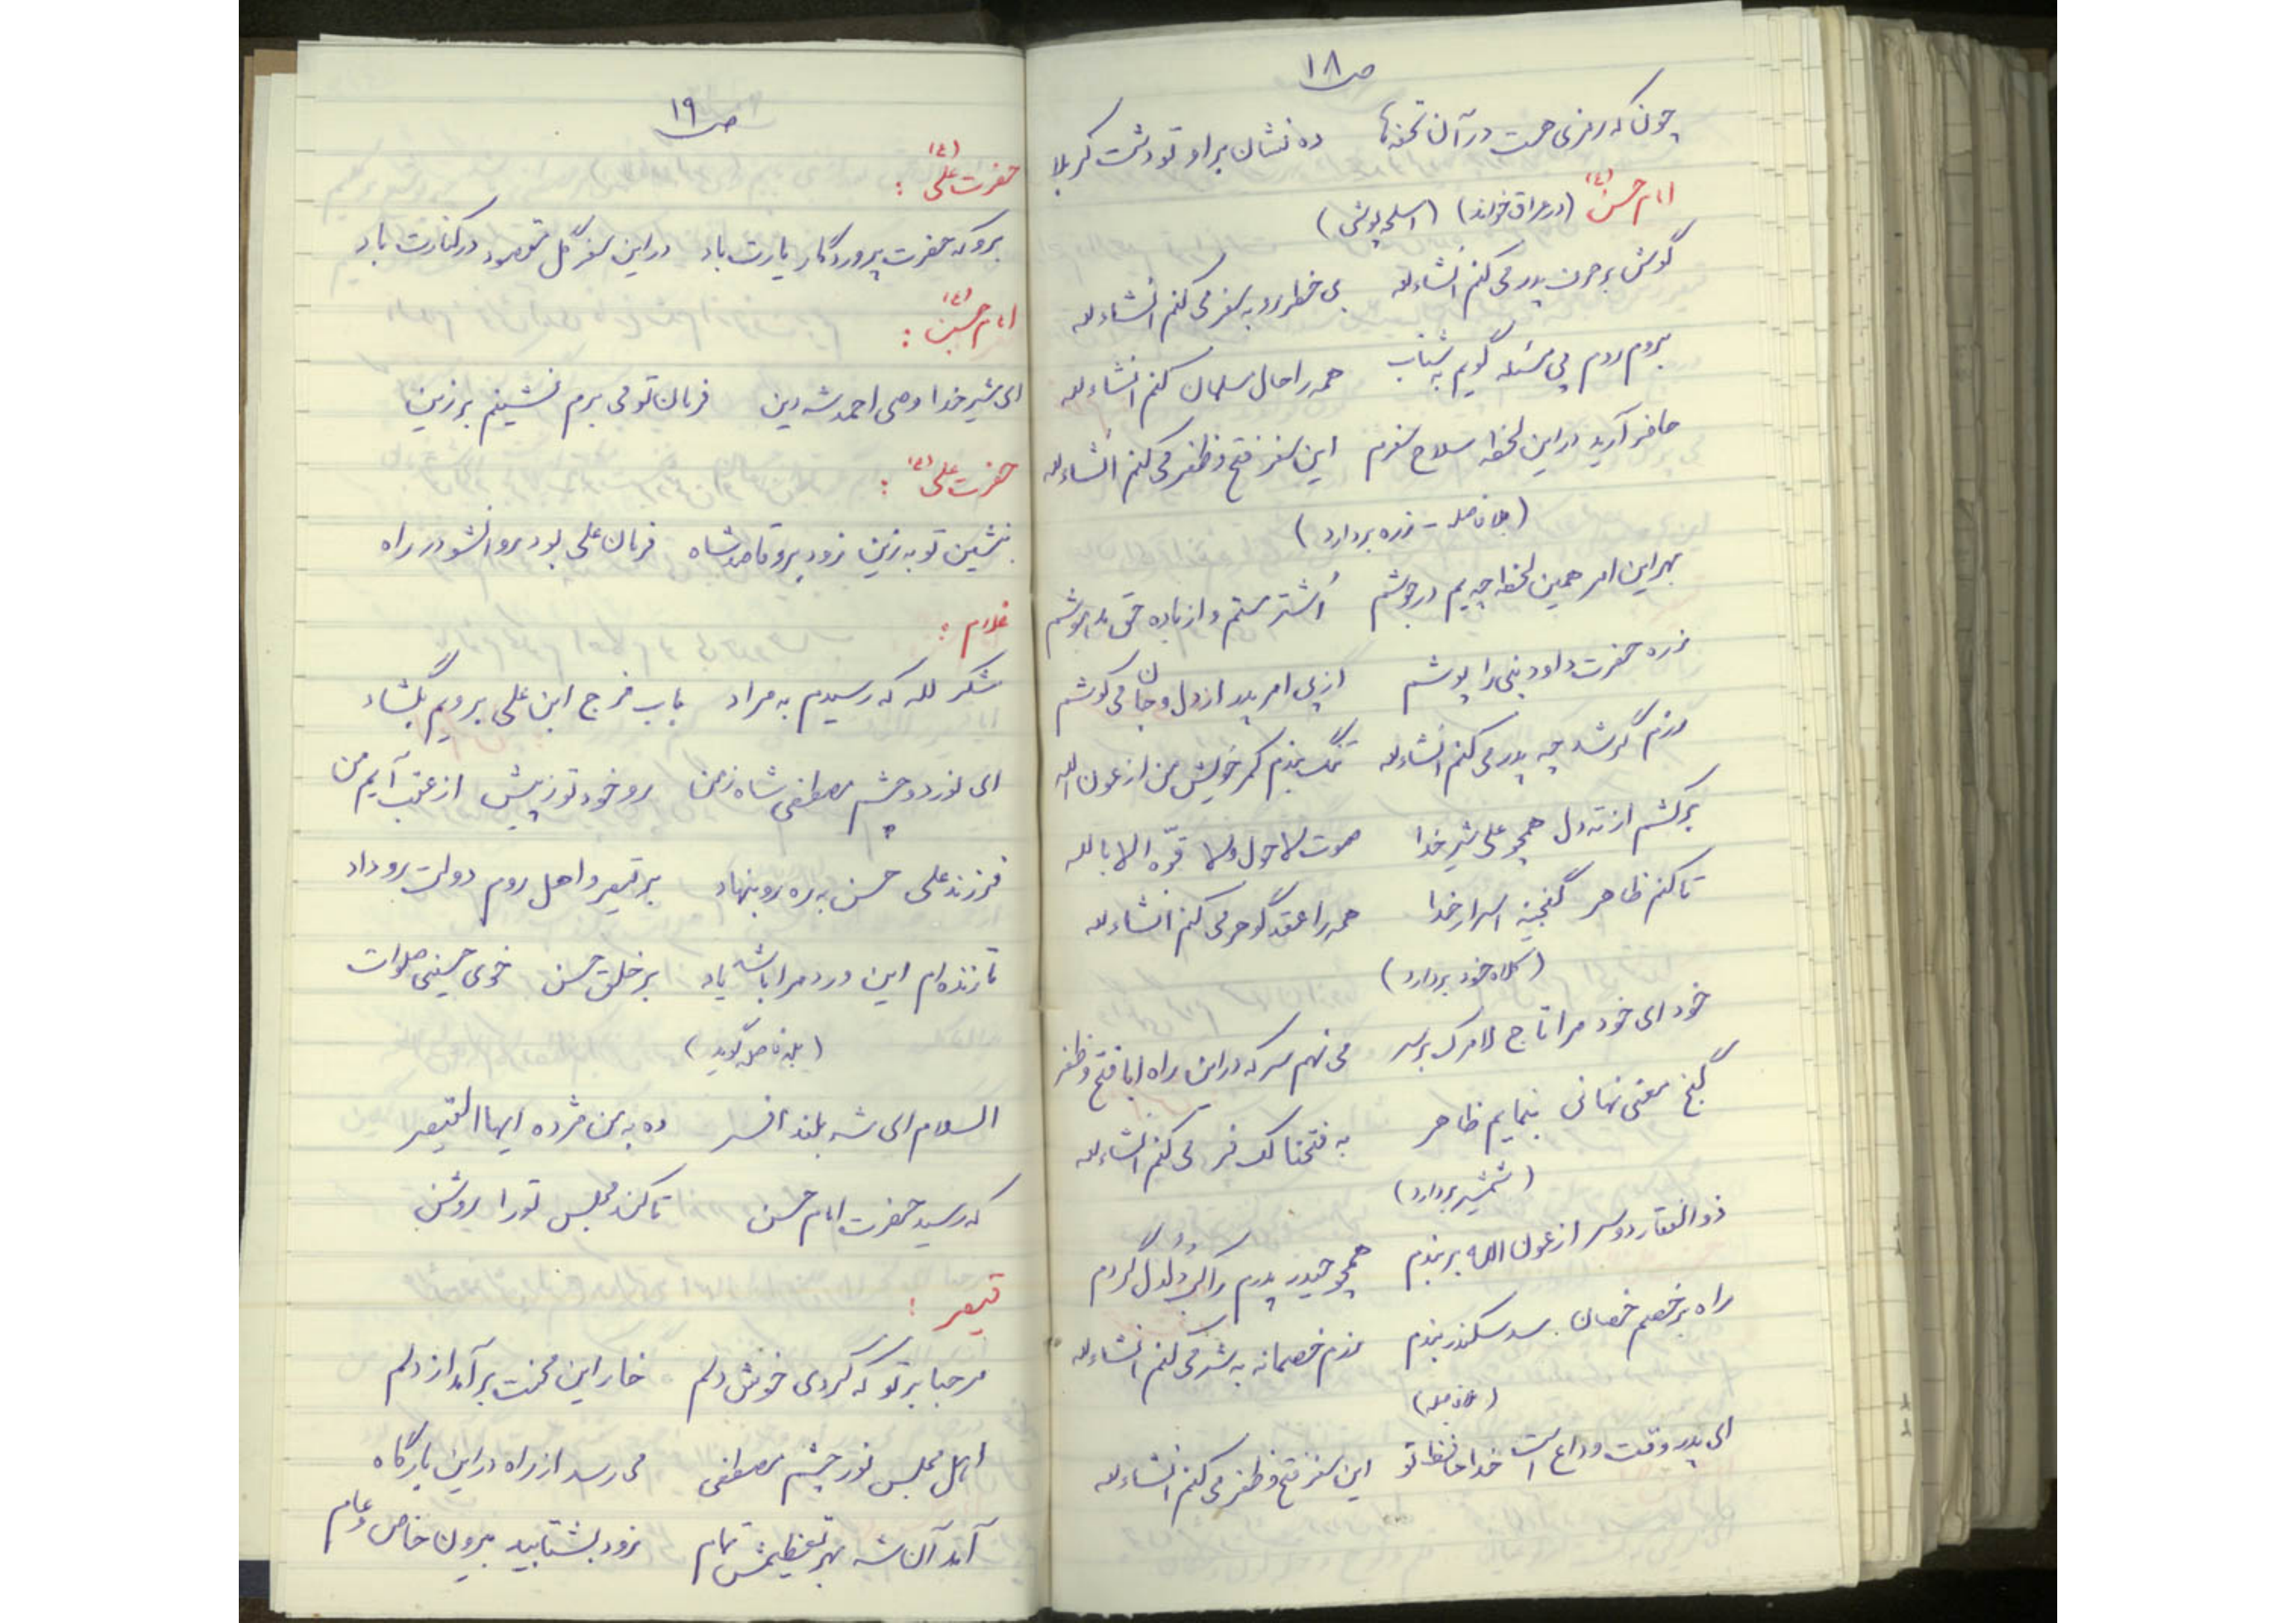 ص ۱۸
چون که رمزی هست در آن تحفه‌ها ده نشان بر او تو دشت کربلا
امام حسن (ع) (در عراق خواند) (اسلحه پوشی)
گوش بر حرف پدر می کنم انشاءلله بی خطر رو به سفر می کنم انشاءلله
بروم روم پی مسئله گویم به شتاب همه را حال سلمان کنم انشاءلله
حاضر آرید در این لحظه سلاح سفرم این سفر فتح و ظفر می کنم انشاءلله
(بلافاصله - زره بردارد)
بهر این امر همین لحظه چو یم در جوشم اُشتر مستم و از باده حق مدهوشم
زره حضرت داود نبی را پوشم از پی امر پدر از دل و جان می کوشم
عزم گر شد چه پدر می کنم انشاءلله تنگ بندم کمر خویش من از عون الله
برکشم از ته دل همچو علی شیر خدا صوت لاحول ولا قوّه الا بالله
تا کنم ظاهر گنجینه اسرار خدا همه را عقد گوهر می کنم انشاءلله
(کلاه خود بردارد)
خود ای خود مرا تاج لامرک بر سر می نهم سر که در این راه ابا فتح و ظفر
گنج معنی نهانی بنمایم ظاهر به فتحنا لک فر می کنم انشاءلله
(شمشیر بردارد)
ذوالفقار دو سر از عون الله بر بندم همچو حیدر پدرم راکب دُلدُل گردم
راه بر خصم خصمان سد سکندر بندم عزم خصمانه به شر می کنم انشاءلله
(بلافاصله)
ای پدر وقت وداع است خدا حافظ تو این سفر فتح و ظفر می کنم انشاءلله
ص ۱۹
حضرت علی (ع) :
برو که حضرت پروردگار یارت باد در این سفر گل مقصود در کنارت باد
امام حسین (ع) :
ای شیر خدا وصی احمد شه دین فرمان تو می برم نشینم بر زین
حضرت علی (ع) :
بنشین تو به زین زود برو قاصد شاه فرمان علی بود برو انشو در راه
غلام :
شکر لله که رسیدم به مراد باب فرج ابن علی برویم بگشاد
ای نور دو چشم مصطفی شاه زمن رو خود تو ز پیش از عقب آیم من
فرزند علی حسن به ره رو بنهاد بر قیصر و اهل روم دولت رو داد
تا زنده‌ام این درد مرا باشد یاد بر خلق حسن خوی حسینی صلوات
(بلافاصله گوید)
السلام ای شه بلند افسر ده به من مژده ایها القیصر
که رسید حضرت امام حسن تا کند مجلس تو را روشن
قیصر :
مرحبا بر تو که کردی خوش دلم خار این محنت برآمد از دلم
اهل مجلس نور چشم مصطفی می رسد از راه در این بارگاه
آمد آن شه بهر تعظیمش تمام زود بشتابید بیرون خاص و عام